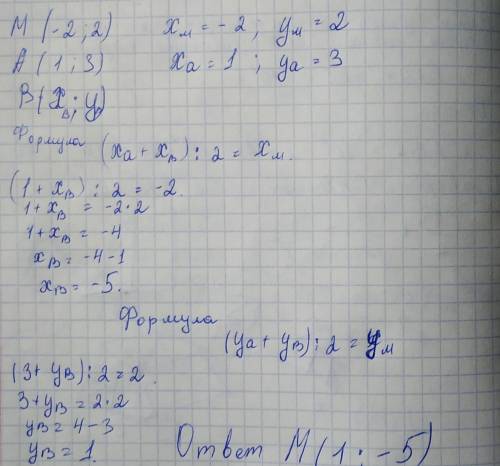 M (-2; 2) xм = -2; yм = 2
A (1; 3) xa = 1; ya = 3
B(xв; y)
Формула (xa + xв) : 2 = xм.
(1 + xв) : 2 = -2.
1 + xв = -2·2
1 + xв = -4
xв = -4-1
xв = -5.
Формула
(ya + yв) : 2 = yм
(3 + yв) : 2 = 2.
3 + yв = 2·2
yв = 4-3
yв = 1.
Ответ M (1; -5)